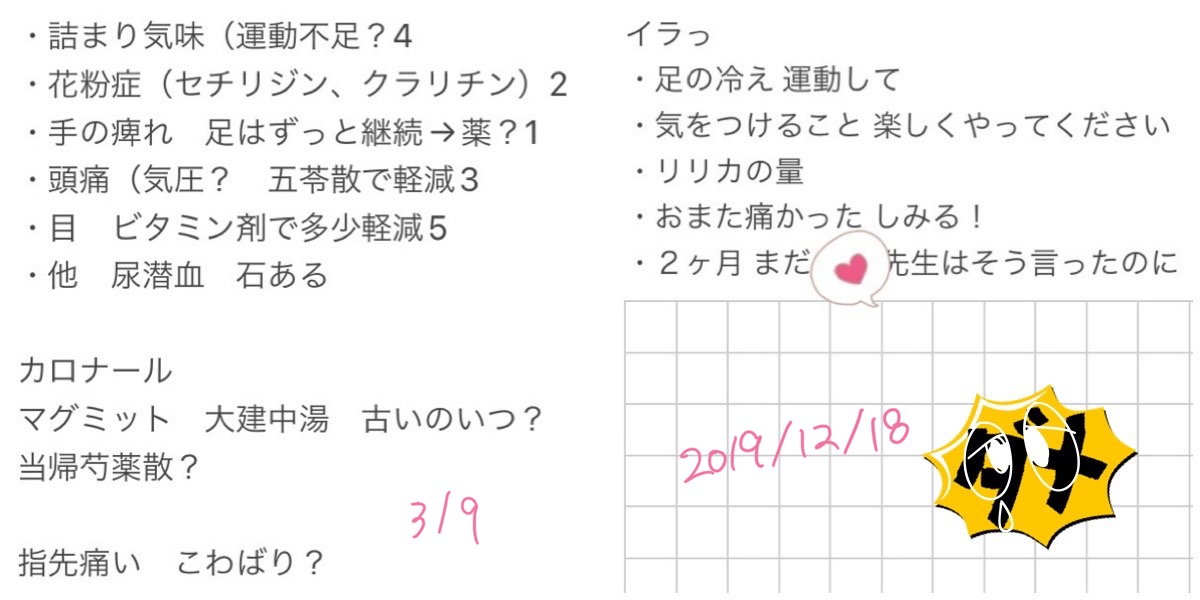 ・詰まり気味（運動不足？4
・花粉症（セチリジン、クラリチン）2
・手の痺れ　足はずっと継続→薬？1
・頭痛（気圧？　五苓散で軽減3
・目　ビタミン剤で多少軽減5
・他　尿潜血　石ある
カロナール
マグミット　大建中湯　古いのいつ？
当帰芍薬散？
3/9
指先痛い　こわばり？
イラっ
・足の冷え 運動して
・気をつけること 楽しくやってください
・リリカの量
・おまた痛かった しみる！
・２ヶ月 まだ 先生はそう言ったのに
2019/12/18
ダメ